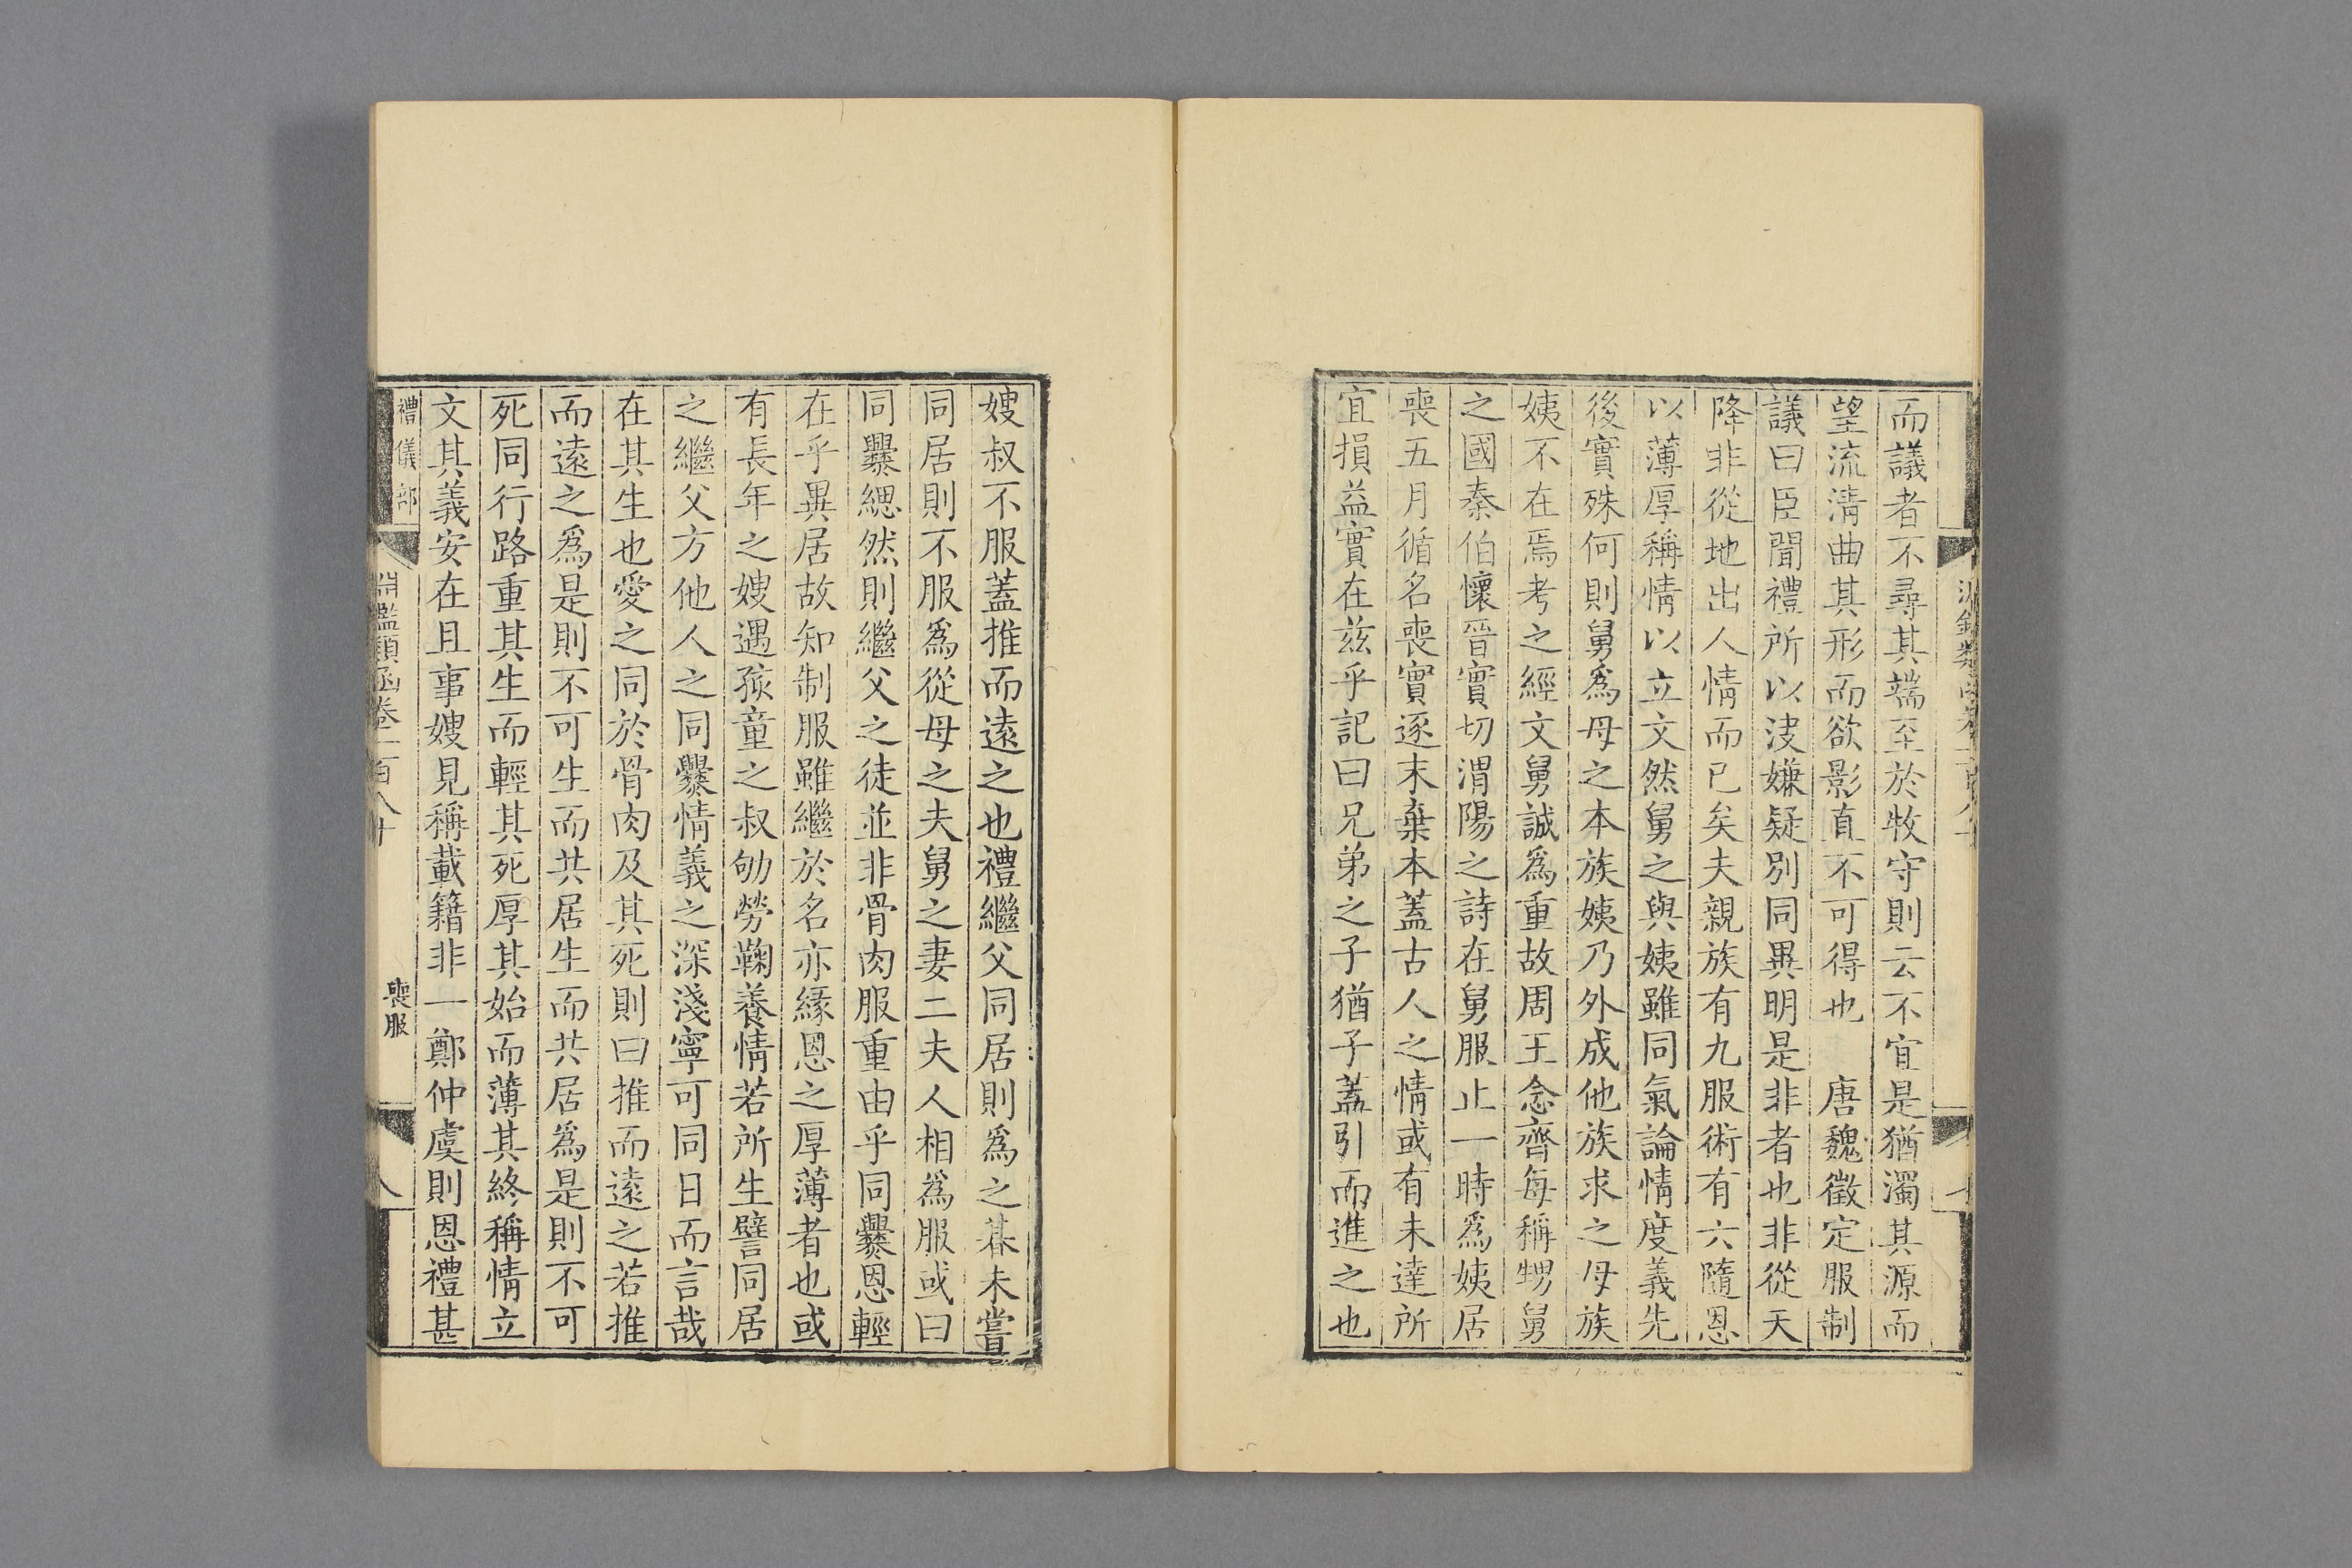 而議者不尋其端至於牧守則云不宜是猶濁其源而
望流淸曲其形而欲影直不可得也　唐魏徵定服制
議曰臣聞禮所以決嫌疑別同異明是非者也非從天
降非從地出人情而已矣夫親族有九服術有六隨恩
以薄厚稱情以立文然舅之與姨雖同氣論情度義先
後實殊何則舅爲母之本族姨乃外成他族求之母族
姨不在焉考之經文舅誠爲重故周王念齊每稱甥舅
之國秦伯懷晉實切渭陽之詩在舅服止一時爲姨居
喪五月循名喪實逐末棄本蓋古人之情或有未達所
宜損益實在茲乎記曰兄弟之子猶子蓋引而進之也
嫂叔不服蓋推而遠之也禮繼父同居則爲之朞未嘗
同居則不服爲從母之夫舅之妻二夫人相爲服或曰
同爨緦然則繼父之徒並非骨肉服重由乎同爨恩輕
在乎異居故知制服雖繼於名亦緣恩之厚薄者也或
有長年之嫂遇孩童之叔劬勞鞠養情若所生譬同居
之繼父方他人之同爨情義之深淺寧可同日而言哉
在其生也愛之同於骨肉及其死則曰推而遠之若推
而遠之爲是則不可生而共居生而共居爲是則不可
死同行路重其生而輕其死厚其始而薄其終稱情立
文其義安在且事嫂見稱載籍非一鄭仲虞則恩禮甚
禮儀部
淵鑑類函卷一百八十
喪服
八